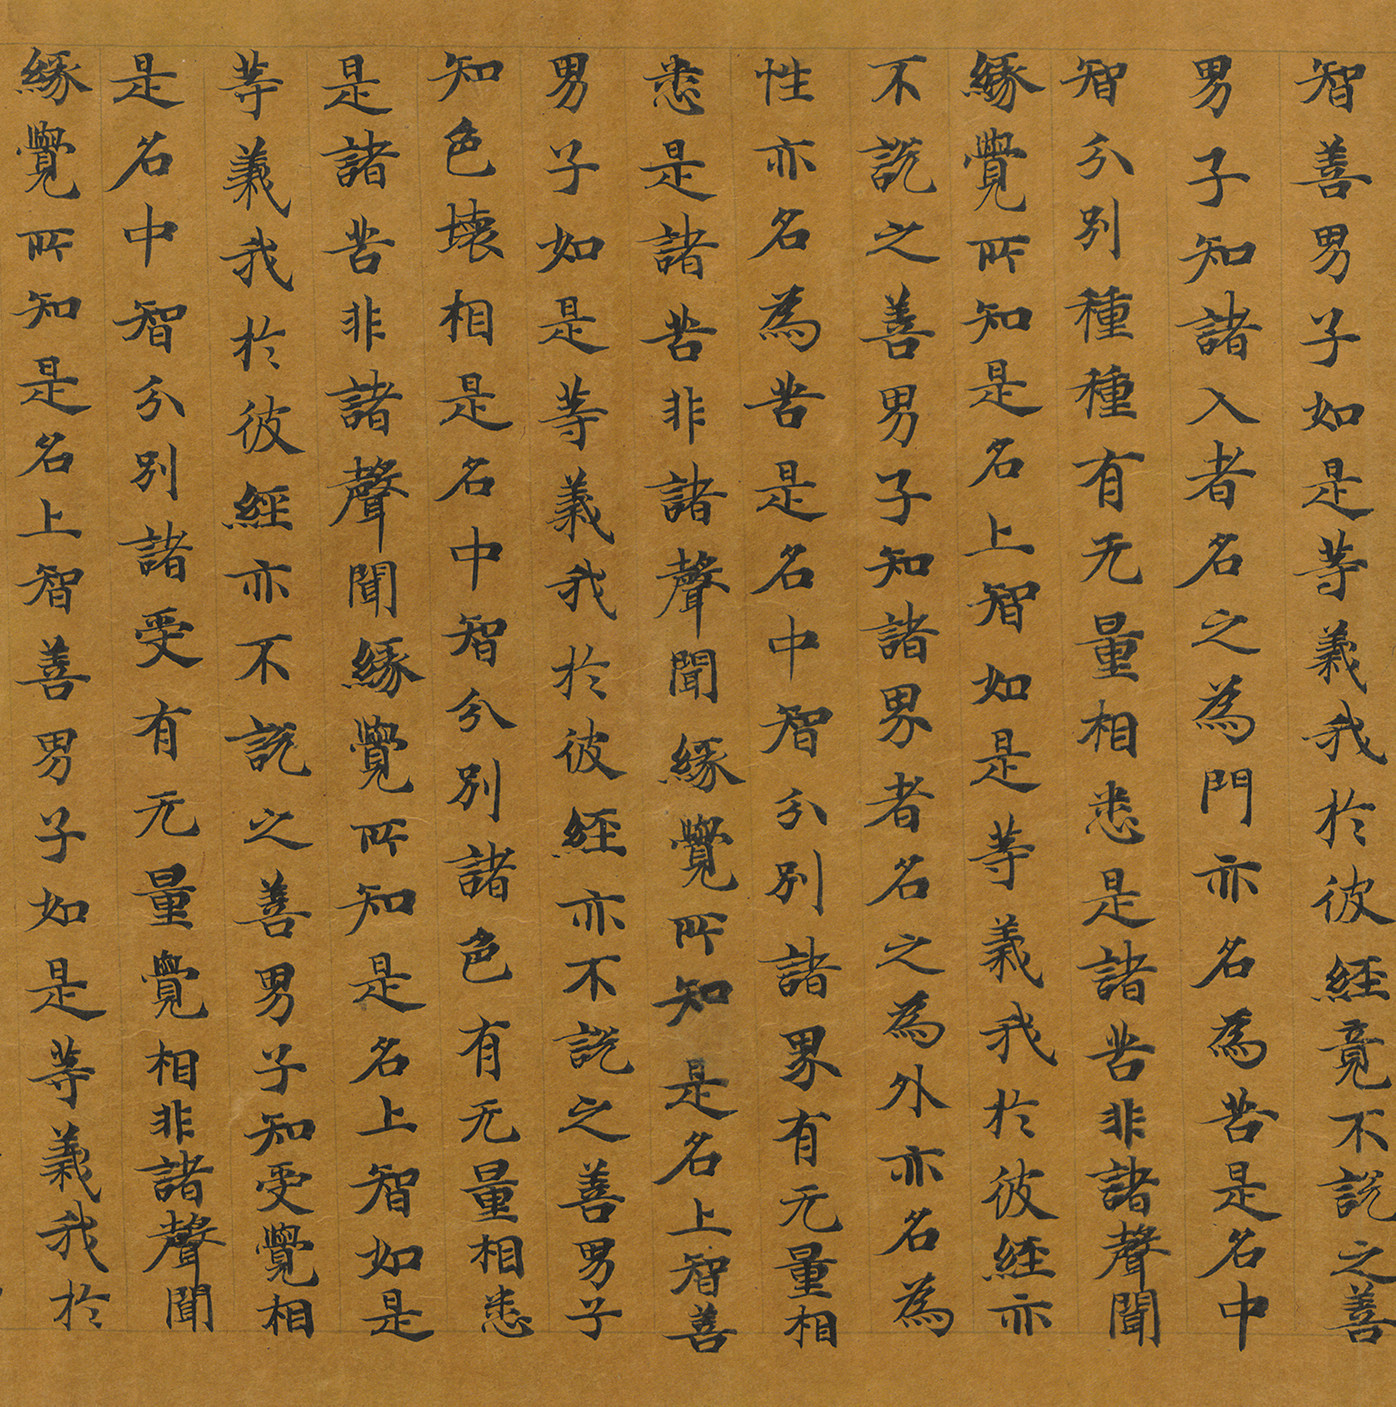 智善男子如是等義我於彼經竟不說之善
男子知諸入者名之為門亦名為苦是名中
智分別種種有无量相悉是諸苦非諸聲聞
緣覺所知是名上智如是等義我於彼經亦
不說之善男子知諸界者名之為外亦名為
性亦名為苦是名中智分別諸界有无量相
悉是諸苦非諸聲聞緣覺所知是名上智善
男子如是等義我於彼經亦不說之善男子
知色壞相是名中智分別諸色有无量相悉
是諸苦非諸聲聞緣覺所知是名上智如是
等義我於彼經亦不說之善男子知受覺相
是名中智分別諸受有无量覺相非諸聲聞
緣覺所知是名上智善男子如是等義我於